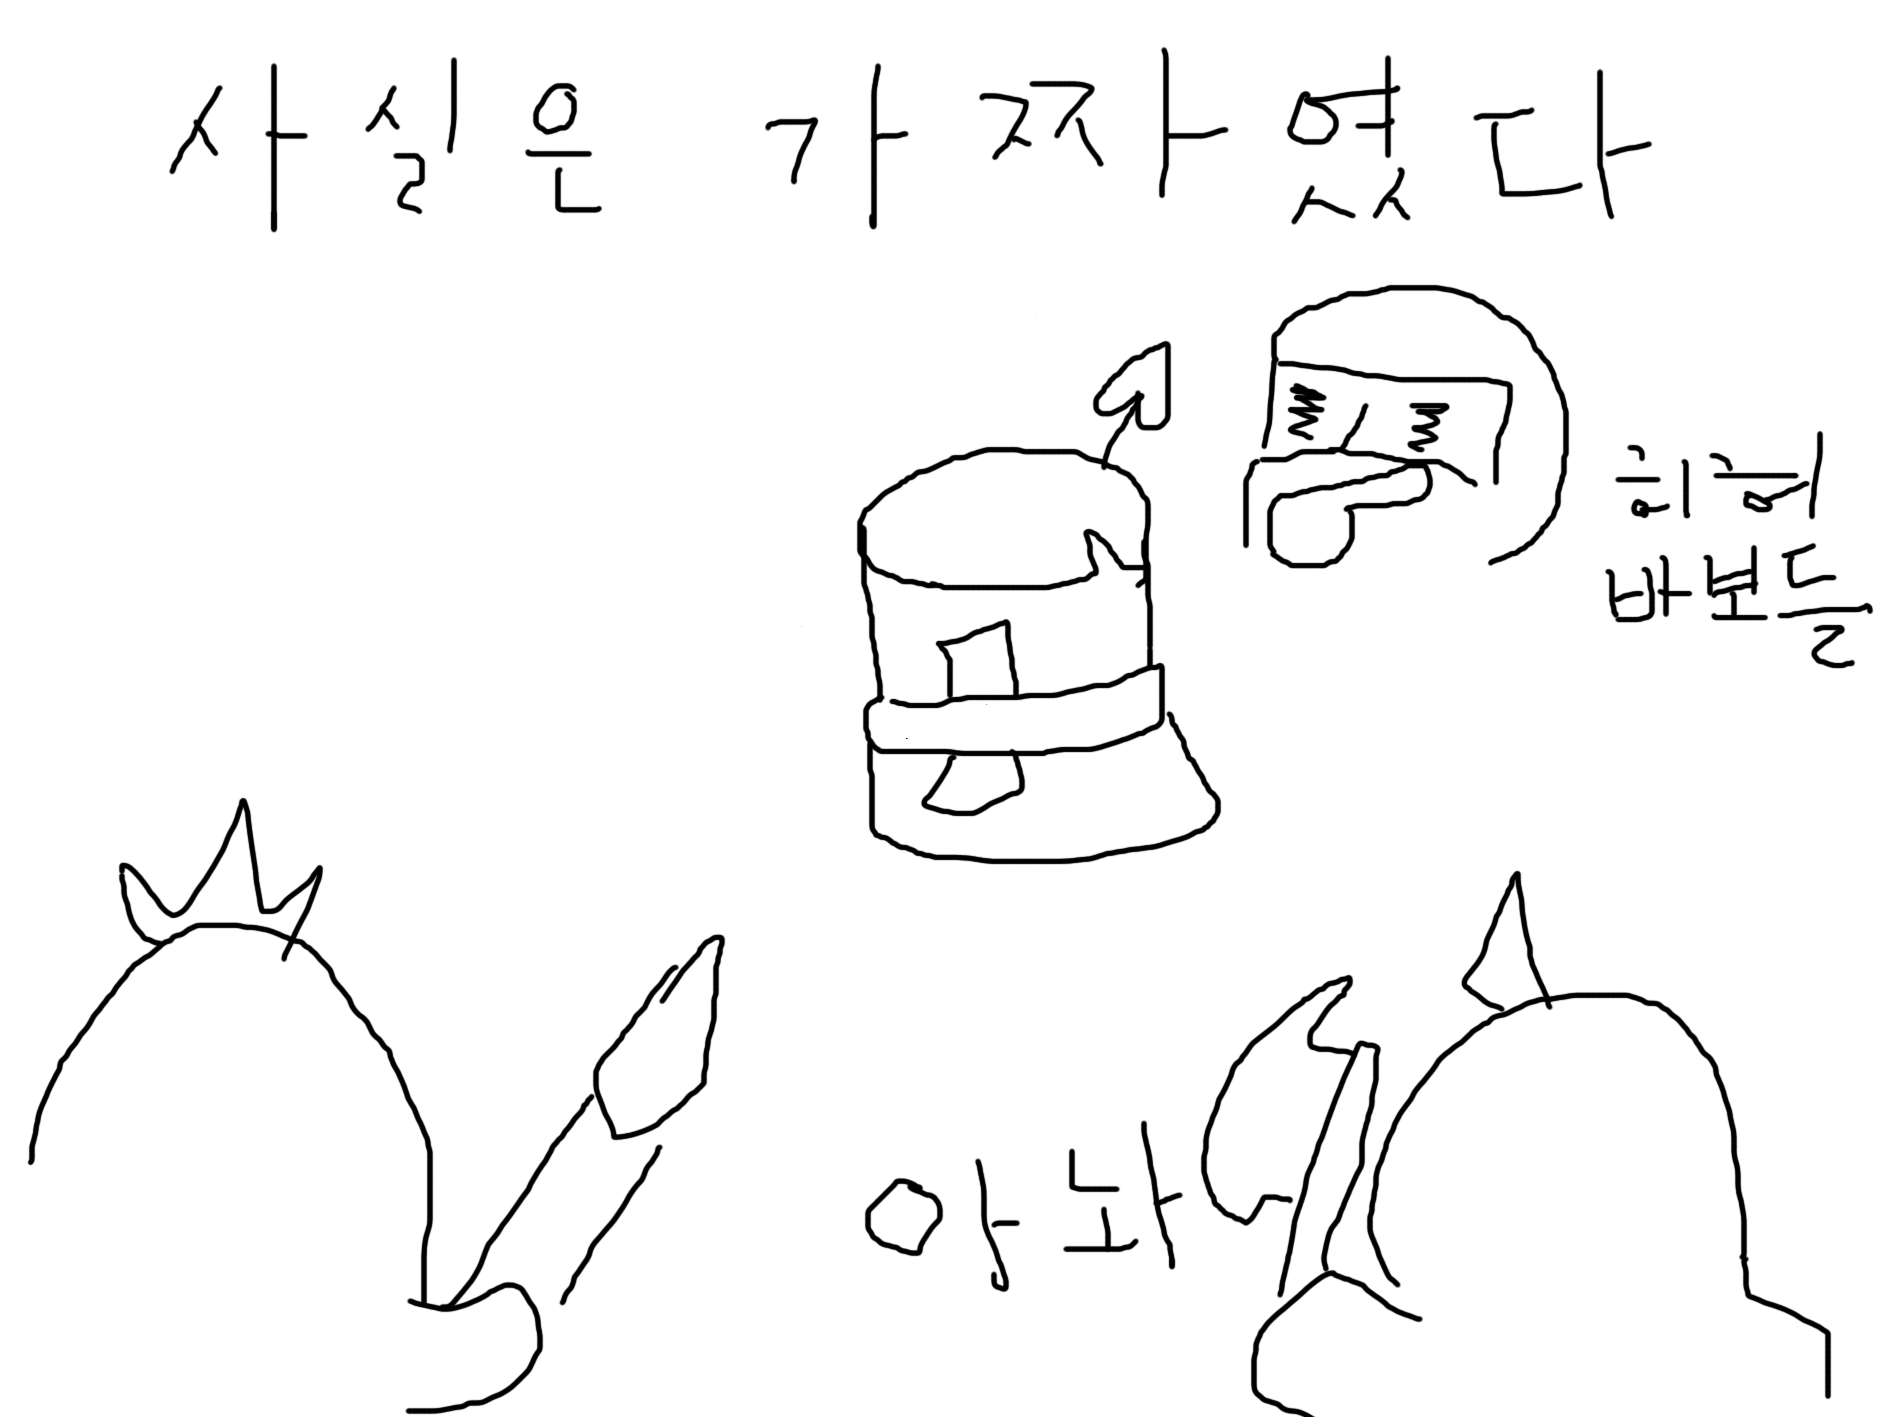 사실은 가짜였다
히히
바보들
아놔